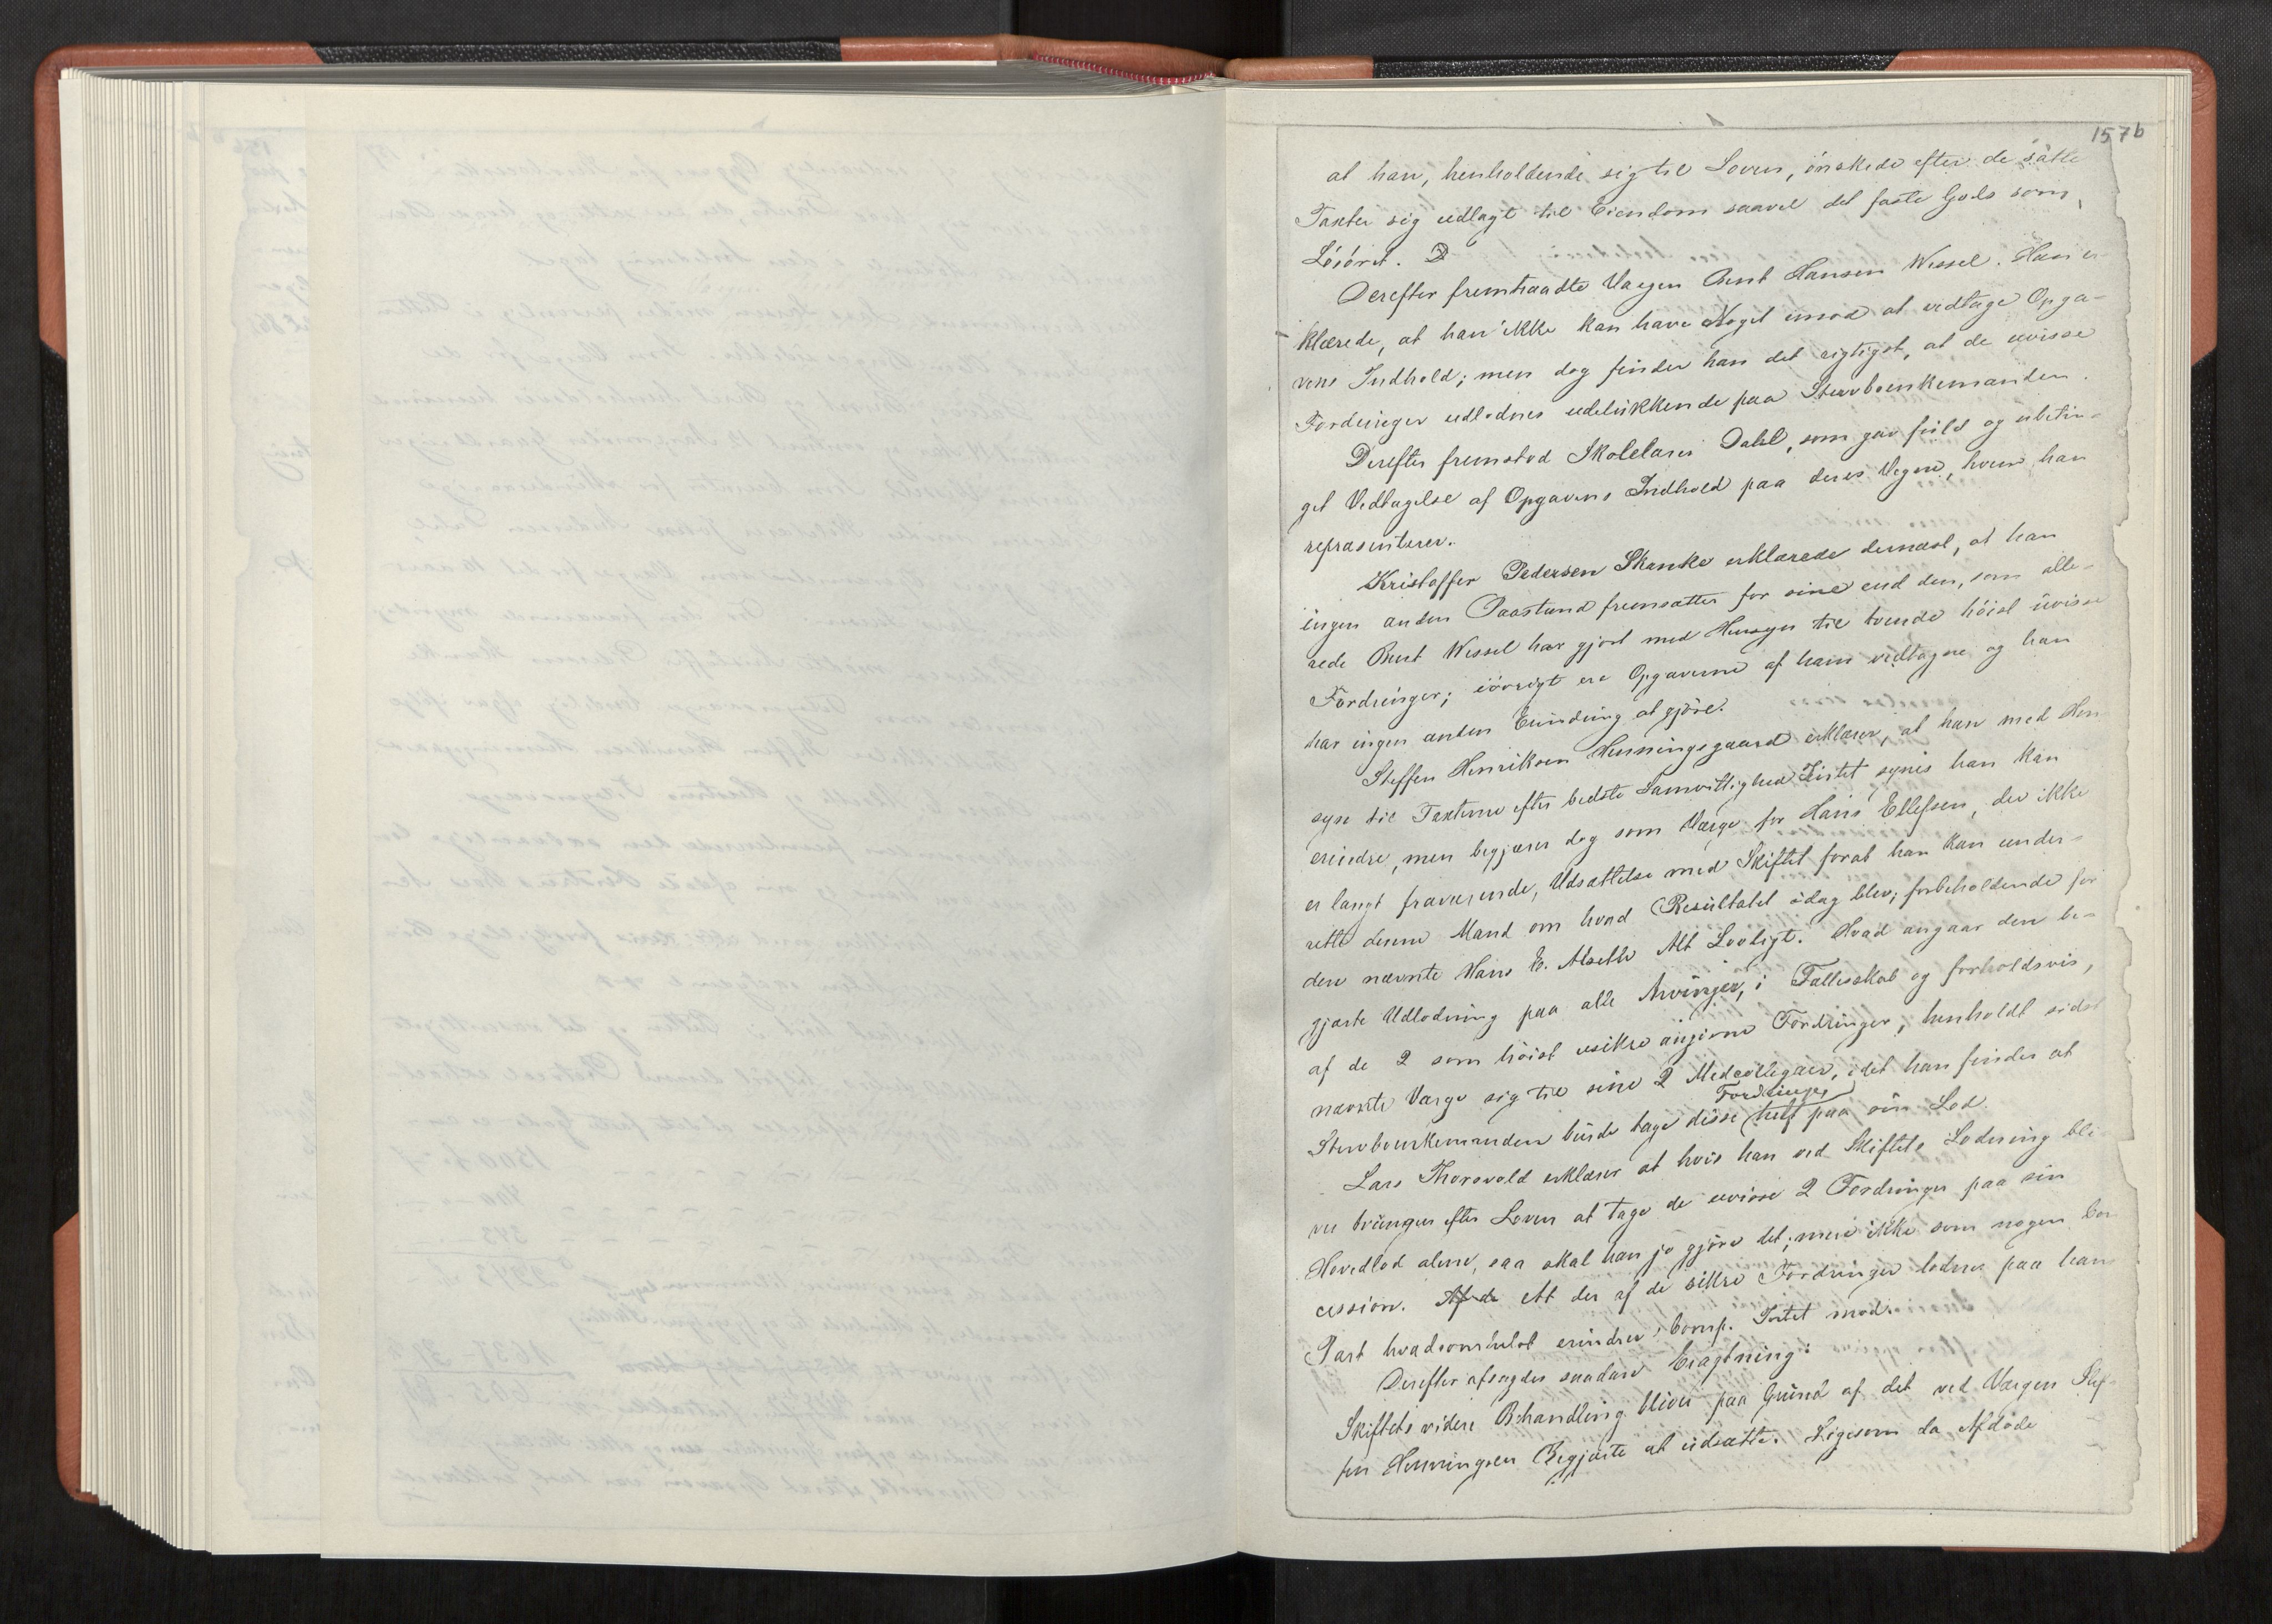 157b
at han, henholdende sig til Loven, ønskede efter de satte
Taxter sig udlagt til Eiendom saavel det faste Gods som
Løsøret. D
Derefter fremtraadte Værgen Bent Hansen Wessel. Han er-
klærede, at han ikke kan have Noget imod at vedtage Opga-
vens Indhold; men dog finder han det rigtigst, at de uvisse
Fordringer udlodnes udelukkende paa Stervboenkemanden.
Derefter fremstod Skolelærer Dahl, som gav fuld og ubetin-
get Vedtagelse af Opgavens Indhold paa deres Vegne, hvem han
repræsenterer.
Kristoffer Pedersen Skanke erklærede dernæst, at han
ingen anden Paastand fremsætter for sine end den, som alle-
rede Bent Wessel har gjort med Hensyn til tvende høist uvisse
Fordringer; iøvrigt ere Opgaverne af ham vedtagne og han
har ingen anden Erindring at gjøre.
Steffen Henriksen Henningsgaard erklærer, at han med Hen
syn til Taxterne efter bedste Samvittighed Intet synes han kan
erindre, men begjærer dog som Værge for Hans Ellefsen, der ikke
er langt fraværende, Udsættelse med Skiftet forat han kan under-
rette denne Mand om hvad Resultatet idag blev; forbeholdende for
den nævnte Hans E. Alseth Alt Lovligt. Hvad angaar den be-
gjærte Udlodning paa alle Arvinger, i Fællesskab og forholdsvis,
af de 2 som høist usikre angivne Fordringer, henholdt sidst
nævnte Værge sig til sine 2 Medcollegaer, idet han finder at
Fordringer
Stervboenkemanden burde tage disse helt paa sin Lod.
Lars Thorsvold erklærer at hvis han ved Skiftets Lodning bli
ver tvungen efter Loven at tage de uvisse 2 Fordringer paa sin
Hovedlod alene, saa skal han jo gjøre det; men ikke som nogen Con
cession. Af de At der af de sikre Fordringer lodnes paa hans
Part hvadsomhelst erindrer Comp. Intet mod.
Derefter afsagdes saadan Eragtning:
Skiftets videre Behandling bliver paa Grund af det ved Værgen Stef-
fen Henningsen Begjærte at udsætte. Ligesom da Afdøde